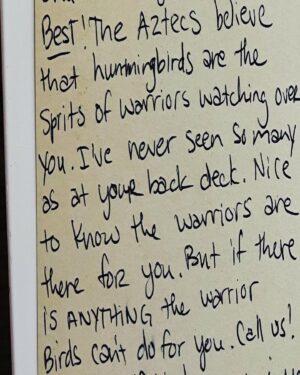 Best! The Aztecs believe
that hummingbirds are the
Sprits of Warriors watching over
you. I've never seen So many
as at your back deck. Nice
to Know the warriors are
there for you. But if there
is ANYTHING the warrior
Birds can't do for you. Call us!